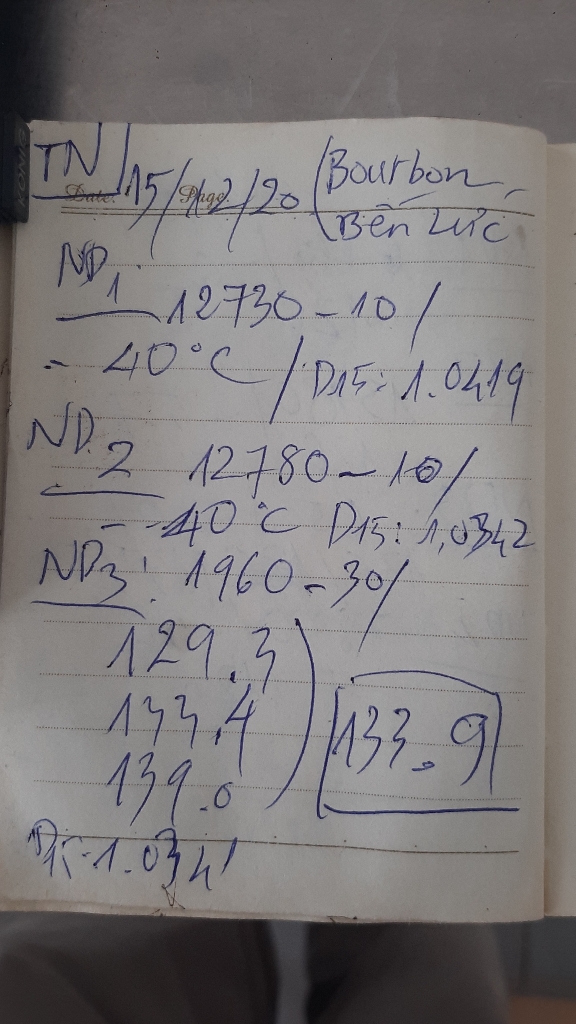 TN/15/12/20 (Bourbon,
Date: Page:
Bến Lức
ND1: 12730-10/
- 40°C / D15: 1.0419
ND.2 12780-10/
- -40°C D15: 1,0342
ND3: 1960-30/
129.3
133.4 133.9
139.0